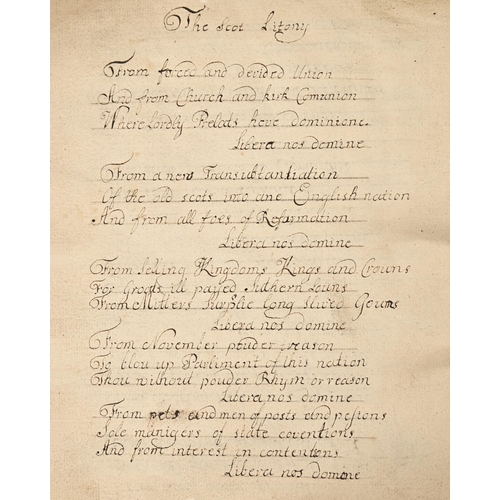 The scot Litany
From forced and devided Union
And from Church and kirk Comunion
Where Lordly Prelads have dominione.
Libera nos domine
From a new Transubtantiation
Of the old scots into ane English nation
And from all foes of Reformation
Libera nos domine
From selling Kingdoms Kings and Crouns
For Groats ill payed Sutheren Louns
From Mitters Surplic Long slived Gouns
Libera nos domine
From November pouder treason
To blou up Parliment of this nation
Thou without pouder Rhym or reason
Libera nos domine
From pets and men of posts and pesions
Sole manigers of state coventions
And from interest in contentons
Libera nos domine